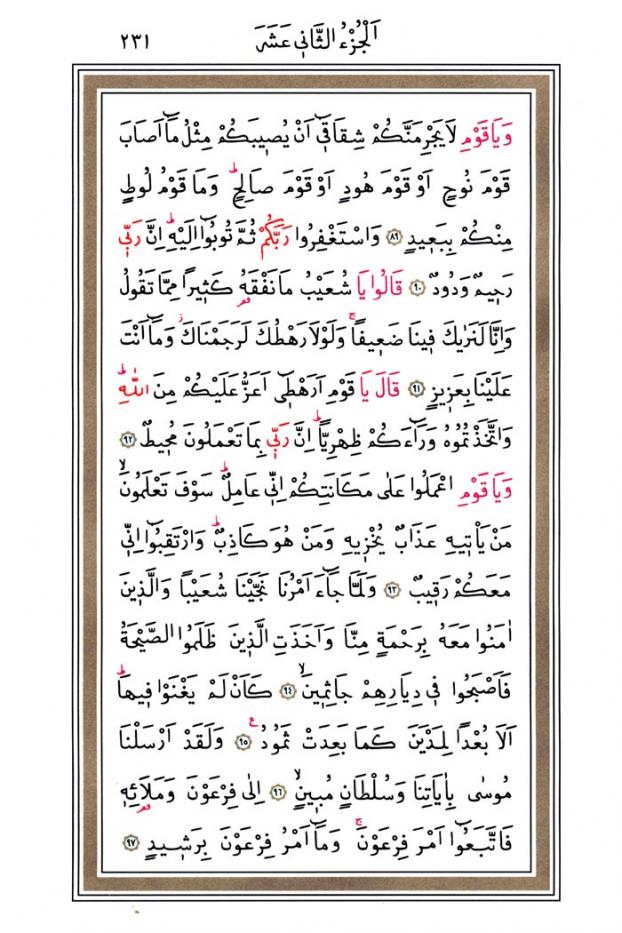 اَلْجُزْءُ الثَّانٖى عَشَرَ
٢٣١
وَيَا قَوْمِ لَا يَجْرِمَنَّكُمْ شِقَاقٖٓى اَنْ يُصٖيبَكُمْ مِثْلُ مَٓا اَصَابَ
قَوْمَ نُوحٍ اَوْ قَوْمَ هُودٍ اَوْ قَوْمَ صَالِحٍؕ وَمَا قَوْمُ لُوطٍ
مِنْكُمْ بِبَعٖيدٍ ﴿٨٩﴾ وَاسْتَغْفِرُوا رَبَّكُمْ ثُمَّ تُوبُٓوا اِلَيْهِؕ اِنَّ رَبّٖى
رَحٖيمٌ وَدُودٌ ﴿٩٠﴾ قَالُوا يَا شُعَيْبُ مَا نَفْقَهُ كَثٖيرًا مِمَّا تَقُولُ
وَاِنَّا لَنَرٰيكَ فٖينَا ضَعٖيفًاۚ وَلَوْلَا رَهْطُكَ لَرَجَمْنَاكَؗ وَمَٓا اَنْتَ
عَلَيْنَا بِعَزٖيزٍ ﴿٩١﴾ قَالَ يَا قَوْمِ اَرَهْطٖٓى اَعَزُّ عَلَيْكُمْ مِنَ اللّٰهِؕ
وَاتَّخَذْتُمُوهُ وَرَٓاءَكُمْ ظِهْرِيًّاؕ اِنَّ رَبّٖى بِمَا تَعْمَلُونَ مُحٖيطٌ ﴿٩٢﴾
وَيَا قَوْمِ اعْمَلُوا عَلٰى مَكَانَتِكُمْ اِنّٖى عَامِلٌؕ سَوْفَ تَعْلَمُونَۙ
مَنْ يَاْتٖيهِ عَذَابٌ يُخْزٖيهِ وَمَنْ هُوَ كَاذِبٌؕ وَارْتَقِبُٓوا اِنّٖى
مَعَكُمْ رَقٖيبٌ ﴿٩٣﴾ وَلَمَّا جَٓاءَ اَمْرُنَا نَجَّيْنَا شُعَيْبًا وَالَّذٖينَ
اٰمَنُوا مَعَهُ بِرَحْمَةٍ مِنَّا وَاَخَذَتِ الَّذٖينَ ظَلَمُوا الصَّيْحَةُ
فَاَصْبَحُوا فٖى دِيَارِهِمْ جَاثِمٖينَۙ ﴿٩٤﴾ كَاَنْ لَمْ يَغْنَوْا فٖيهَاؕ
اَلَا بُعْدًا لِمَدْيَنَ كَمَا بَعِدَتْ ثَمُودُࣖ ﴿٩٥﴾ وَلَقَدْ اَرْسَلْنَا
مُوسٰى بِاٰيَاتِنَا وَسُلْطَانٍ مُبٖينٍۙ ﴿٩٦﴾ اِلٰى فِرْعَوْنَ وَمَلَا۬ئِهٖ
فَاتَّبَعُٓوا اَمْرَ فِرْعَوْنَۚ وَمَٓا اَمْرُ فِرْعَوْنَ بِرَشٖيدٍ ﴿٩٧﴾